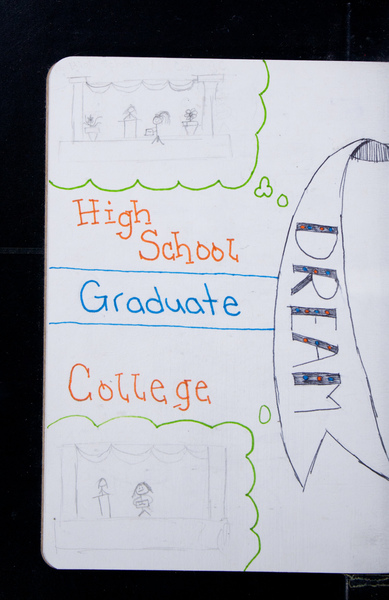 High
School
Graduate
College
DREAM